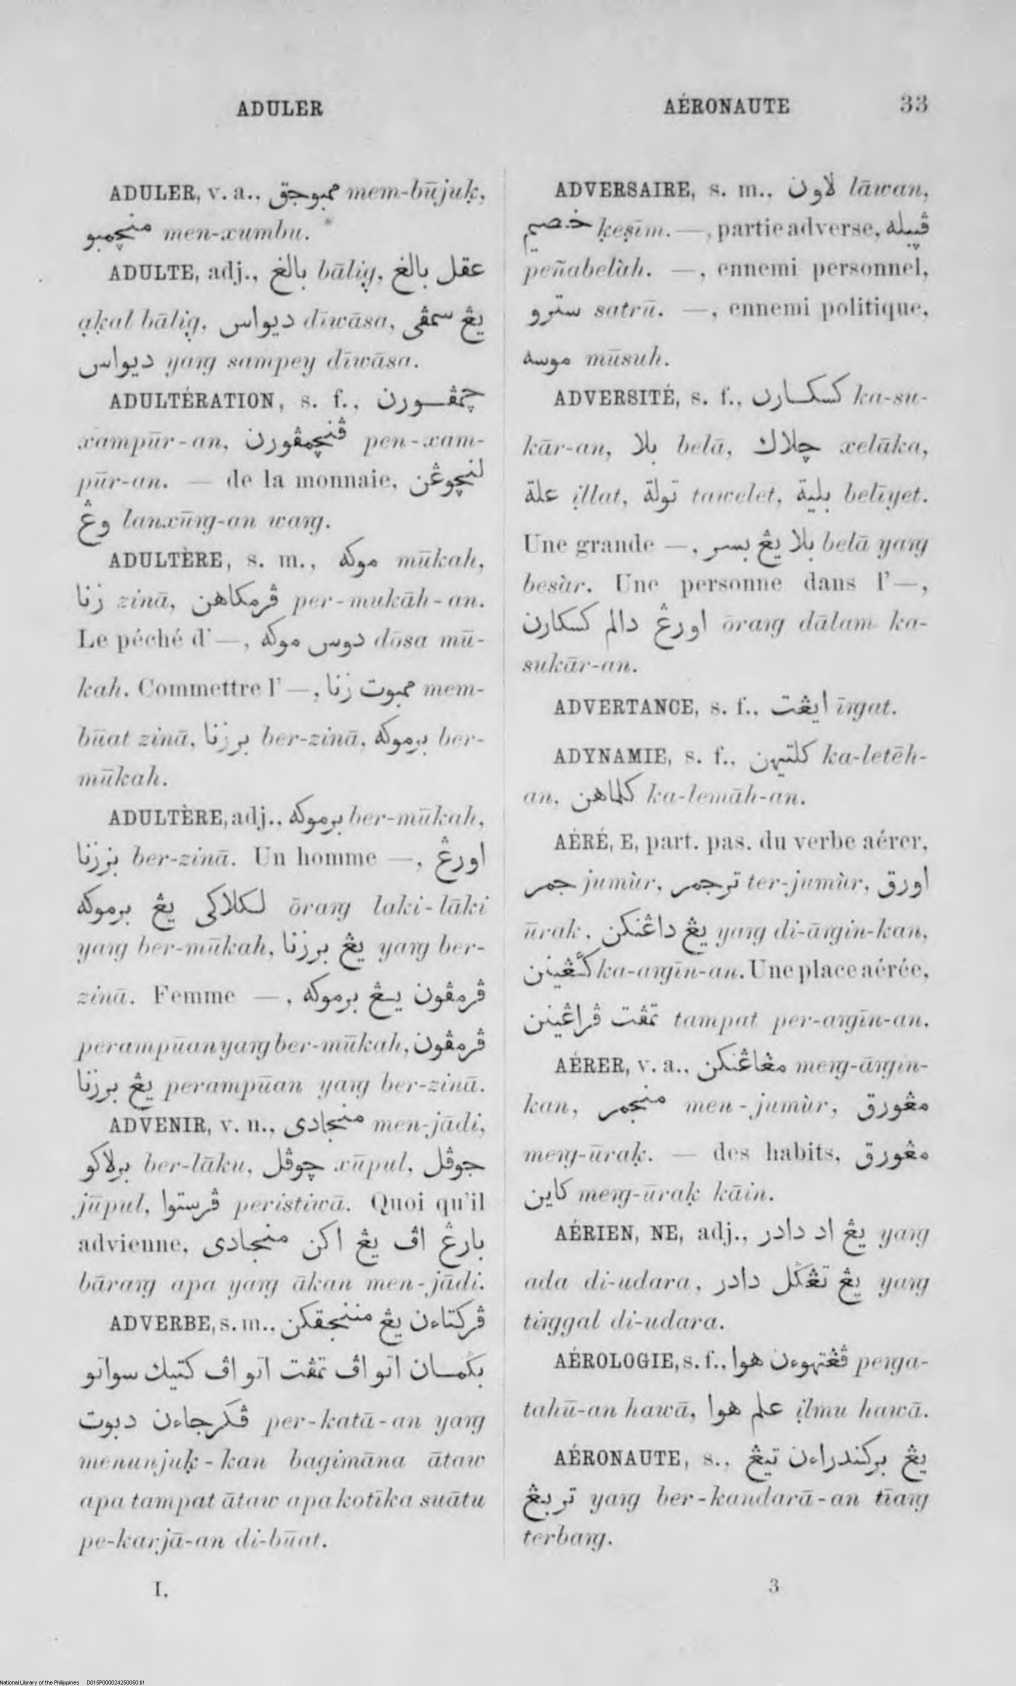 ADULER
AÉRONAUTE 33
ADULER, v. a., ممبوجق mem-būjuḳ,
منچمبو men-xumbu.
ADULTE, adj., بالغ bālig̣, عقل بالغ
ạḳal bālig̣, ديواس dīwāsa, يڠ سمڤى
ديواس yaṉg sampey dīwāsa.
ADULTÉRATION, s. f., چمڤورن
xampūr-an, ڤنچمڤورن pen-xam-
pūr-an. — de la monnaie, لنچوڠن
وڠ lanxūṉg-an waṉg.
ADULTÈRE, s. m., موكه mūkah,
زنا zinā, ڤرمكاهن per-mukāh-an.
Le péché d'—, دوس موكه dōsa mū-
kah. Commettre l'—, ممبوت زنا mem-
būat zinā, برزنا ber-zinā, برموكه ber-
mūkah.
ADULTÈRE, adj., برموكه ber-mūkah,
برزنا ber-zinā. Un homme —, اورڠ
لكلاكى يڠ برموكه ōraṉg laki-lāki
yaṉg ber-mūkah, يڠ برزنا yaṉg ber-
zinā. Femme —, ڤرمڤون يڠ برموكه
perampūan yaṉg ber-mūkah, ڤرمڤون
يڠ برزنا perampūan yaṉg ber-zinā.
ADVENIR, v. n., منجادى men-jādi,
برلاكو ber-lāku, چوڤل xūpul, جوڤل
jūpul, ڤرستوا peristiwā. Quoi qu'il
advienne, بارڠ اڤ يڠ اكن منجادى
bāraṉg apa yaṉg ākan men-jādi.
ADVERBE, s. m., ڤركتاءن يڠ مننجقكن
بگمان اتو اڤ تمڤت اتو اڤ كتيك سواتو
ڤكرجاءن دبوت per-katā-an yaṉg
menunjuḳ-kan bagimāna ātaw
apa tampat ātaw apa kotīka suātu
pe-karjā-an di-būat.
I.
ADVERSAIRE, s. m., لاون lāwan,
خصيم ḳeṣīm. —, partie adverse, ڤيبله
peñabelàh. —, ennemi personnel,
سترو satrū. —, ennemi politique,
موسه mūsuh.
ADVERSITÉ, s. f., كسكارن ka-su-
kār-an, بلا belā, چلاك xelāka,
علة ịllat, تولة tawelet, بلية belīyet.
Une grande —, بلا يڠ بسر belā yaṉg
besàr. Une personne dans l'—,
اورڠ دالم كسكارن ōraṉg dālam ka-
sukār-an.
ADVERTANCE, s. f., ايڠت īṉgat.
ADYNAMIE, s. f., كلتيهن ka-letēh-
an, كلماهن ka-lemāh-an.
AÉRÉ, E, part. pas. du verbe aérer,
جمر jumùr, ترجمر ter-jumùr, اورق
ūrak, يڠ داڠنكن yaṉg di-āṉgin-kan,
كاڠينن ka-aṉgīn-an. Une place aérée,
تمڤت ڤراڠينن tampat per-aṉgīn-an.
AÉRER, v. a., مڠاڠنكن meṉg-āṉgin-
kan, منجمر men-jumùr, مڠورق
meṉg-ūraḳ. — des habits, مڠورق
كاين meṉg-ūraḳ kāin.
AÉRIEN, NE, adj., يڠ اد دادر yaṉg
ada di-udara, يڠ تڠگل دادر yaṉg
tiṉggal di-udara.
AÉROLOGIE, s. f., ڤڠتهوءن هوا peṉga-
tahū-an hawā, علم هوا ịlmu hawā.
AÉRONAUTE, s., يڠ بركندراءن تيڠ
تربڠ yaṉg ber-kandarā-an tīaṉg
terbaṉg.
3
National Library of the Philippines